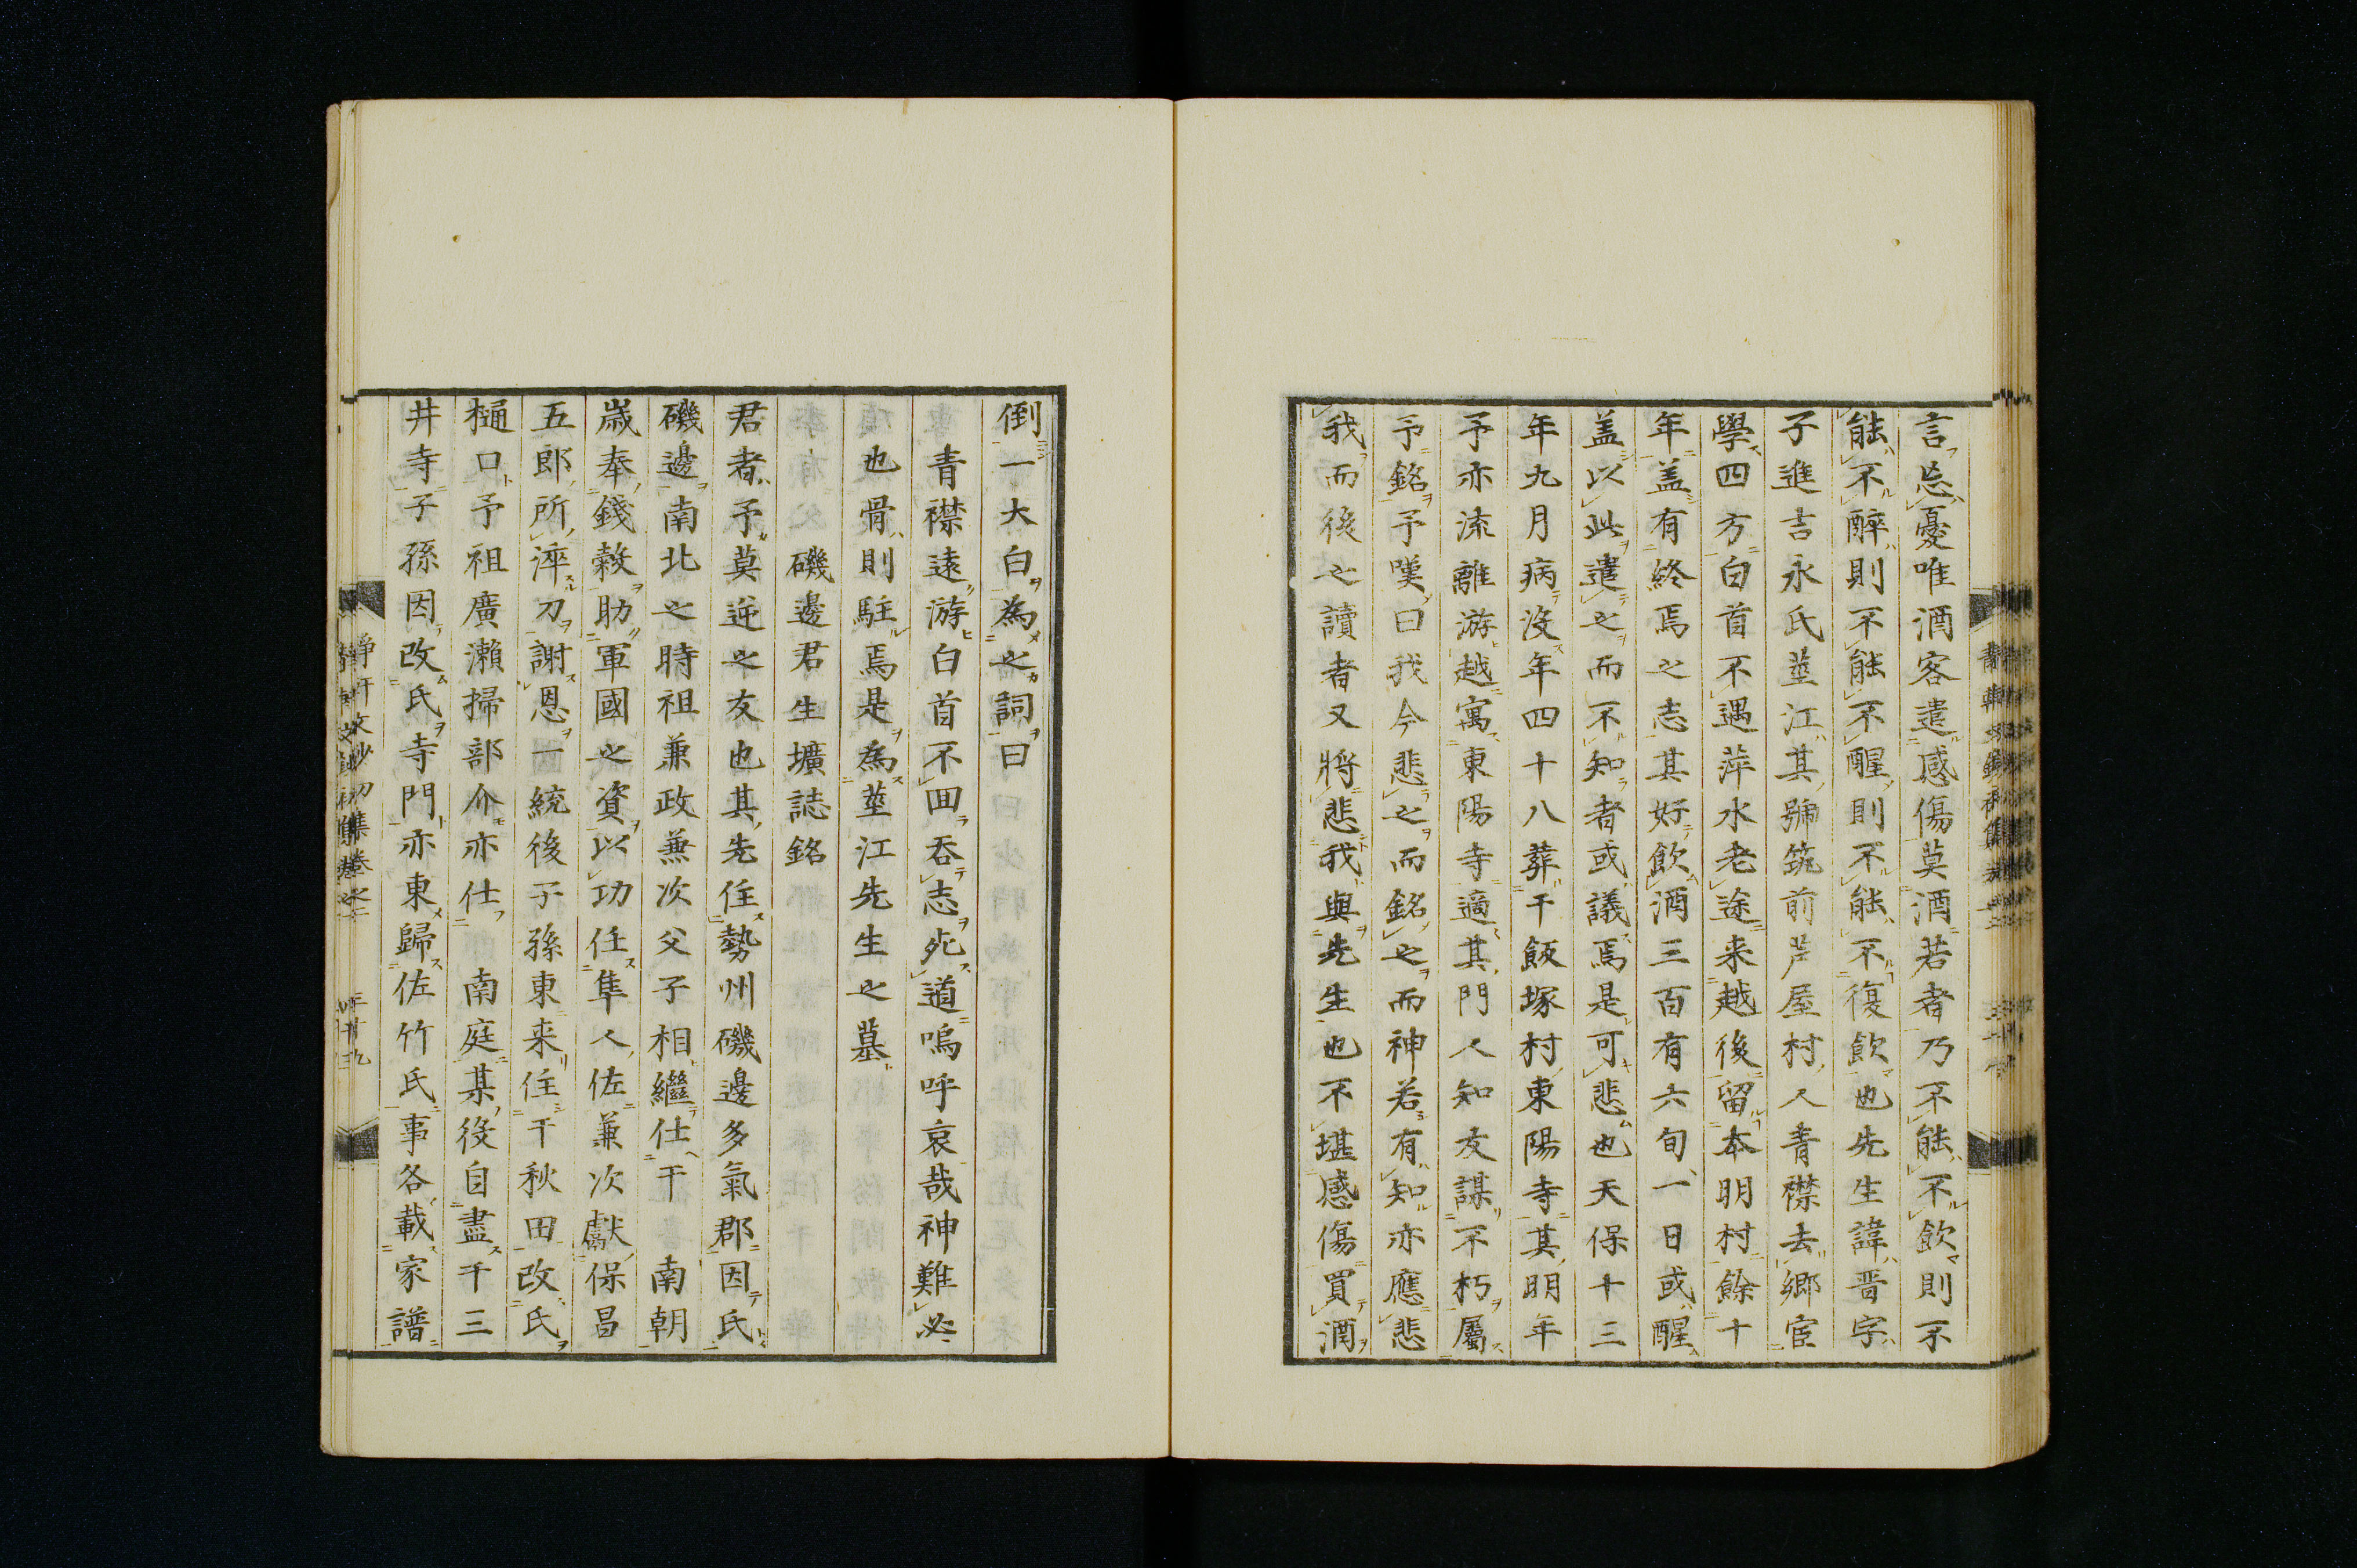 言忘憂唯酒客遣感傷莫酒若者乃不能不飲則不
能不醉則不能不醒則不能不復飲也先生諱晋字
子進吉永氏莖江其號筑前芦屋村人青襟去鄉宦
學四方白首不遇萍水老途来越後留本明村餘十
年盖有終焉之志其好飲酒三百有六旬一日或醒
盖以此遣之而不知者或議焉是可悲也天保十三
年九月病沒年四十八葬于飯塚村東陽寺其明年
予亦流離游越寓東陽寺適其門人知友謀不朽屬
予銘予嘆曰我今悲之而銘之而神若有知亦應悲
我而後之讀者又將悲我與先生也不堪感傷買酒
倒一大白為之詞曰
青襟遠游白首不回吞志死道嗚呼哀哉神難必
也骨則駐焉是為莖江先生之墓
磯邊君生壙誌銘
君者予莫逆之友也其先住勢州磯邊多氣郡因氏
磯邊南北之時祖兼政兼次父子相繼仕于 南朝
歲奉錢穀助軍國之資以功任隼人佐兼次獻保昌
五郎所淬刀謝恩一統後子孫東来住于秋田改氏
樋口予祖廣瀨掃部介亦仕 南庭某役自盡于三
井寺子孫因改氏寺門亦東歸佐竹氏事各載家譜
静軒文鈔初集卷之二